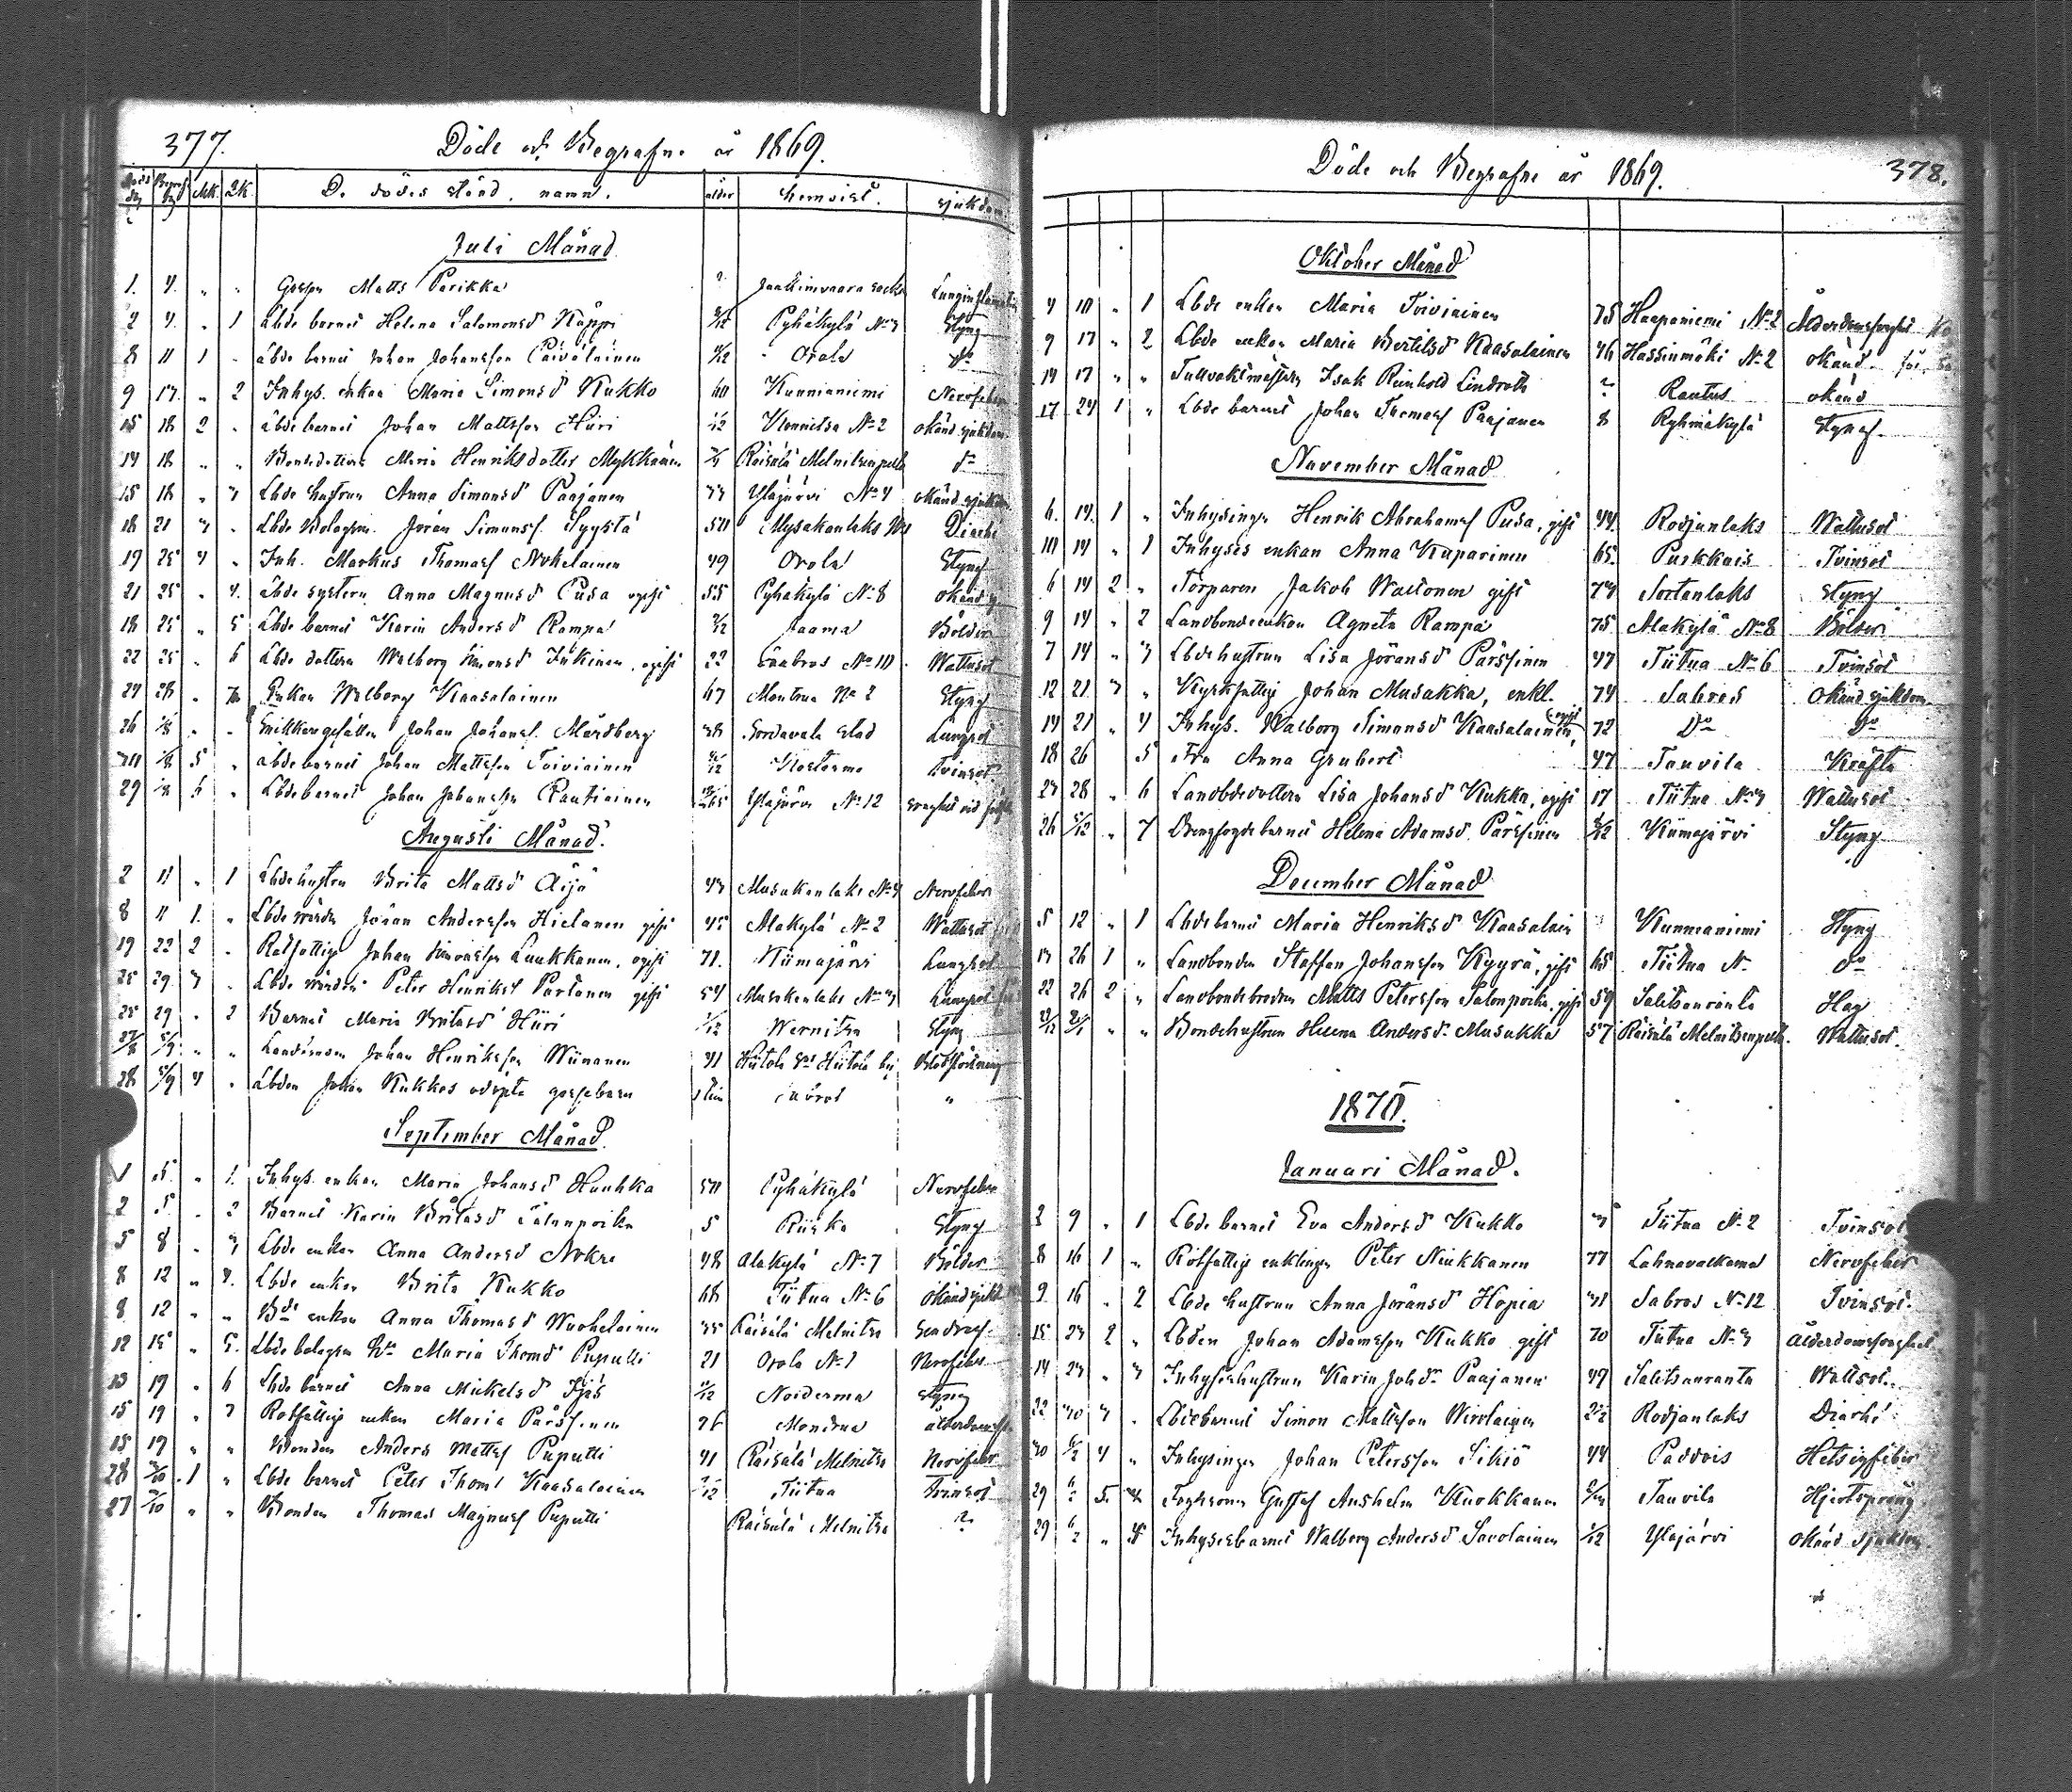 377. Döde och Begrafne år 1869.
Döds dag Begraf. dag Mk. Qk. D. dödes stånd, namn. ålder hemvist. sjukdom
Juli Månad
1. 4. " " Matts Parikka ? Jaakimvaara socken
2 4. " 1 Lbde barnet Helena Salomonsd Käppi /12 Pyhäkylä No 3 Styng
8 11 1 " äbde barnet Johan Johansson Päivöläinen /12 Orola do
9 17. " 2 Inhys. enkan Maria Simonsd Kukko 60 Kunnianiemi Nervfeber
15 18 2 " äbde barnet Johan Mattsson Hiiri /12 Konnitsa No 2 okänd sjukdom
14 18 " " Maria Henriksdotter Mykkänen Räisälä Melnitsenpelto do
15 18 " 3 Lbde hustrun Anna Simonsd Paajanen 33 Yläjärvi No 4 okänd sjukdom
18 21 3 " Lbde Bolagsm. Jöran Simonss. Syystä 50 Musakanlaks Diarhé
19 25 4 " Inh. Markus Thomass Nokelainen 49 Orola Styng
21 25 " 4. äbde systern Anna Magnusd Pusa ogift 55 Pyhäkylä No 8 okänd sj
18 25 " 5 Lbde barnet Karin Andersd Rampa /12 Jaama Bölder
22 25 " 6 Lbde dottern Walborg Simonsd Inkinen, ogift 22 Sabros No 10 Wattusot
24 28 " 7 Enkan Walborg Kaasalainen 67 Montrua No 2 Styng
26 1/8 " " Snikkaregesällen Johan Johanss. Mårdberg 38 Sordavala stad Lungsot
30 1/8 5 " äbde barnet Johan Mattsson Toiviainen /12 Kostermo Tvinsot
29 1/8 6 " Lbde barnet Johan Johansson Rautiainen Yläjärvi No 12 svaghet vid
Augusti Månad.
2 11 " 1 Lbde hustru Brita Mattsd Äijö 43 Musakanlaks No 4 Nervfeber
8 11 1. " Lbde Jöran Andersson Hietanen gift 45 Alakylä No 2 Wattusot
19 22 2 " Rotfattige Johan Simonsson Luukkanen, ogift 71. Kiimajärvi Lungsot
25 29 3 " Lbde Peter Henrikss Partanen gift 54 Musakanlaks No 3 Lungsot
25 29 " 2 Barnet Maria Britasd Hiiri /12 Wernitsa Styng
27/8 5/9 " " Johan Henriksson Wiinanen 41 Hiitola Sn Hiitola by Blodstörtning
28 5/9 4 " Lbden Johan Kukkos odöpta gossebarn 1 tim Sabros "
September Månad.
1 5. " 1. Inhys. enkan Maria Johansd Huuhka 50 Pyhäkylä Nervfeber
2 5. " 2 Barnet Karin Britasd Salonpoika 5 Riiska Styng
5 8 " 3 Lbde enkan Anna Andersd Nokre 48 Alakylä No 7 Bölder
8 12 " 4. Lbde enkan Brita Kukko 68 Tiitua No 6 okänd sjukd
8 12 " " Bde enkan Anna Thomasd Wuohelainen 35 Räisälä Melnitsa
12 15 " 5. Lbde bolagsm Maria Thomd Puputti 21 Orola No 1 Nervfeber
13 19 " 6 Lbde barnet Anna Mickelsd Ijäs /12 Noiderma Styng
15 19 " 7 Rotfattige enkan Maria Pärssinen 76 Montrua ålderdomssv
15 19 " " Bonden Anders Mattss Puputti 41 Räisälä Melnitsa Nervfeber
28 3/10 1 " Lbde barnet Peter Thoms Kaasalainen /12 Tiitua Tvinsot
27 3/10 " " Bonden Thomas Magnuss Puputti Räisälä Melnitsa ?
Döde och Begrafne år 1869. 378.
Oktober Månad
4 10 " 1 Lbde enkan Maria Toiviainen 75 Haapaniemi No 2 Ålderdomssvaghet
9 17 " 2 Lbde enkan Maria Bertilsd Kaasalainen 46 Hassinmäki No 2 okänd
14 17 " " Tullvaktmästaren Isak Reinhold Lindroth ? Rautus okänd
17 24 1 " Lbde barnet Johan Thomass Paajanen 8 Ryhmäkylä Styng.
November Månad
6. 14. 1 " Inhysingen Henrik Abrahamss Pusa, gift 44. Rodjanlaks Wattusot
10 14 " 1 Inhyses enkan Anna Kaparinen 65. Purkkais Tvinsot
6 14 2 " Torparen Jakob Waltonen gift 73 Sortanlaks Styng
9 14 " 2 Landbondeenkan Agneta Rampa 75 Alakylä No 8 Bölder
7 14 " 3 Lbdehustrun Lisa Jöransd Pärssinen 47 Tiitua No 6 Tvinsot
12 21 3 " Kyrkfattige Johan Musakka, enkl. 74 Sabros Okänd sjukdom
14 21 " 4 Inhys. Walborg Simonsd Kaasalainen, ogift 72 Do Do
18 26 5 Fru Anna Grubert 47 Tauvila Kräfta
23 28 " 6 Landbdedottern Lisa Johansd Kukko, ogift 17 Tiitua No 3 Wattusot
26 5/12 " 7 Bergfogdebarnet Helena Adamsd. Pärssinen /12 Kiimajärvi Styng
December Månad
5 12 " 1 Lbdebarnet Maria Henriksd Kaasalain Kunnianiemi Styng
13 26 1 " Landbonden Staffan Johansson Kyyrä, gift 65 Tiitua No do
22 26 2 " Landbondebrodren Matts Petersson Salonpoika, gift 59 Salitsanranta Slag
" " Bondehustrun Helena Andersd. Musakka 57 Räisälä Melnitsenpelto. Wattusot.
1870.
Januari Månad.
2 9 " 1 Lbde barnet Eva Andersd Kukko 3 Tiitua No 2 Tvinsot
8 16 1 " Rotfattige enklingen Peter Niukkanen 77 Lahnavalkama Nervfeber
9 16 " 2 Lbde hustrun Anna Jöransd Hopia 31 Sabros No 12 Tvinsot.
15 23 2 " Lbden Johan Adamsson Kukko gift 70 Tiitua No 3 Ålderdomssvaghet
14 23 " 3 Inhyseshustrun Karin Johd. Paajanen 49 Salitsanranta Wattsot.
22 30 3 " Lbdebarnet Simon Mattsson Wirolainen 2 1/2 Rodjanlaks Diarhé
30 6/2 4 " Inhysingen Johan Petersson Sikiö 44 Paddois Hetsigfeber
29 6/2 5. " Gustaf Anshelm Kuokkanen Tauvila Hjertsprång
29 6/2 " 4 Inhysesbarnet Walborg Andersd Savolainen /12 Yläjärvi okänd sjukdom